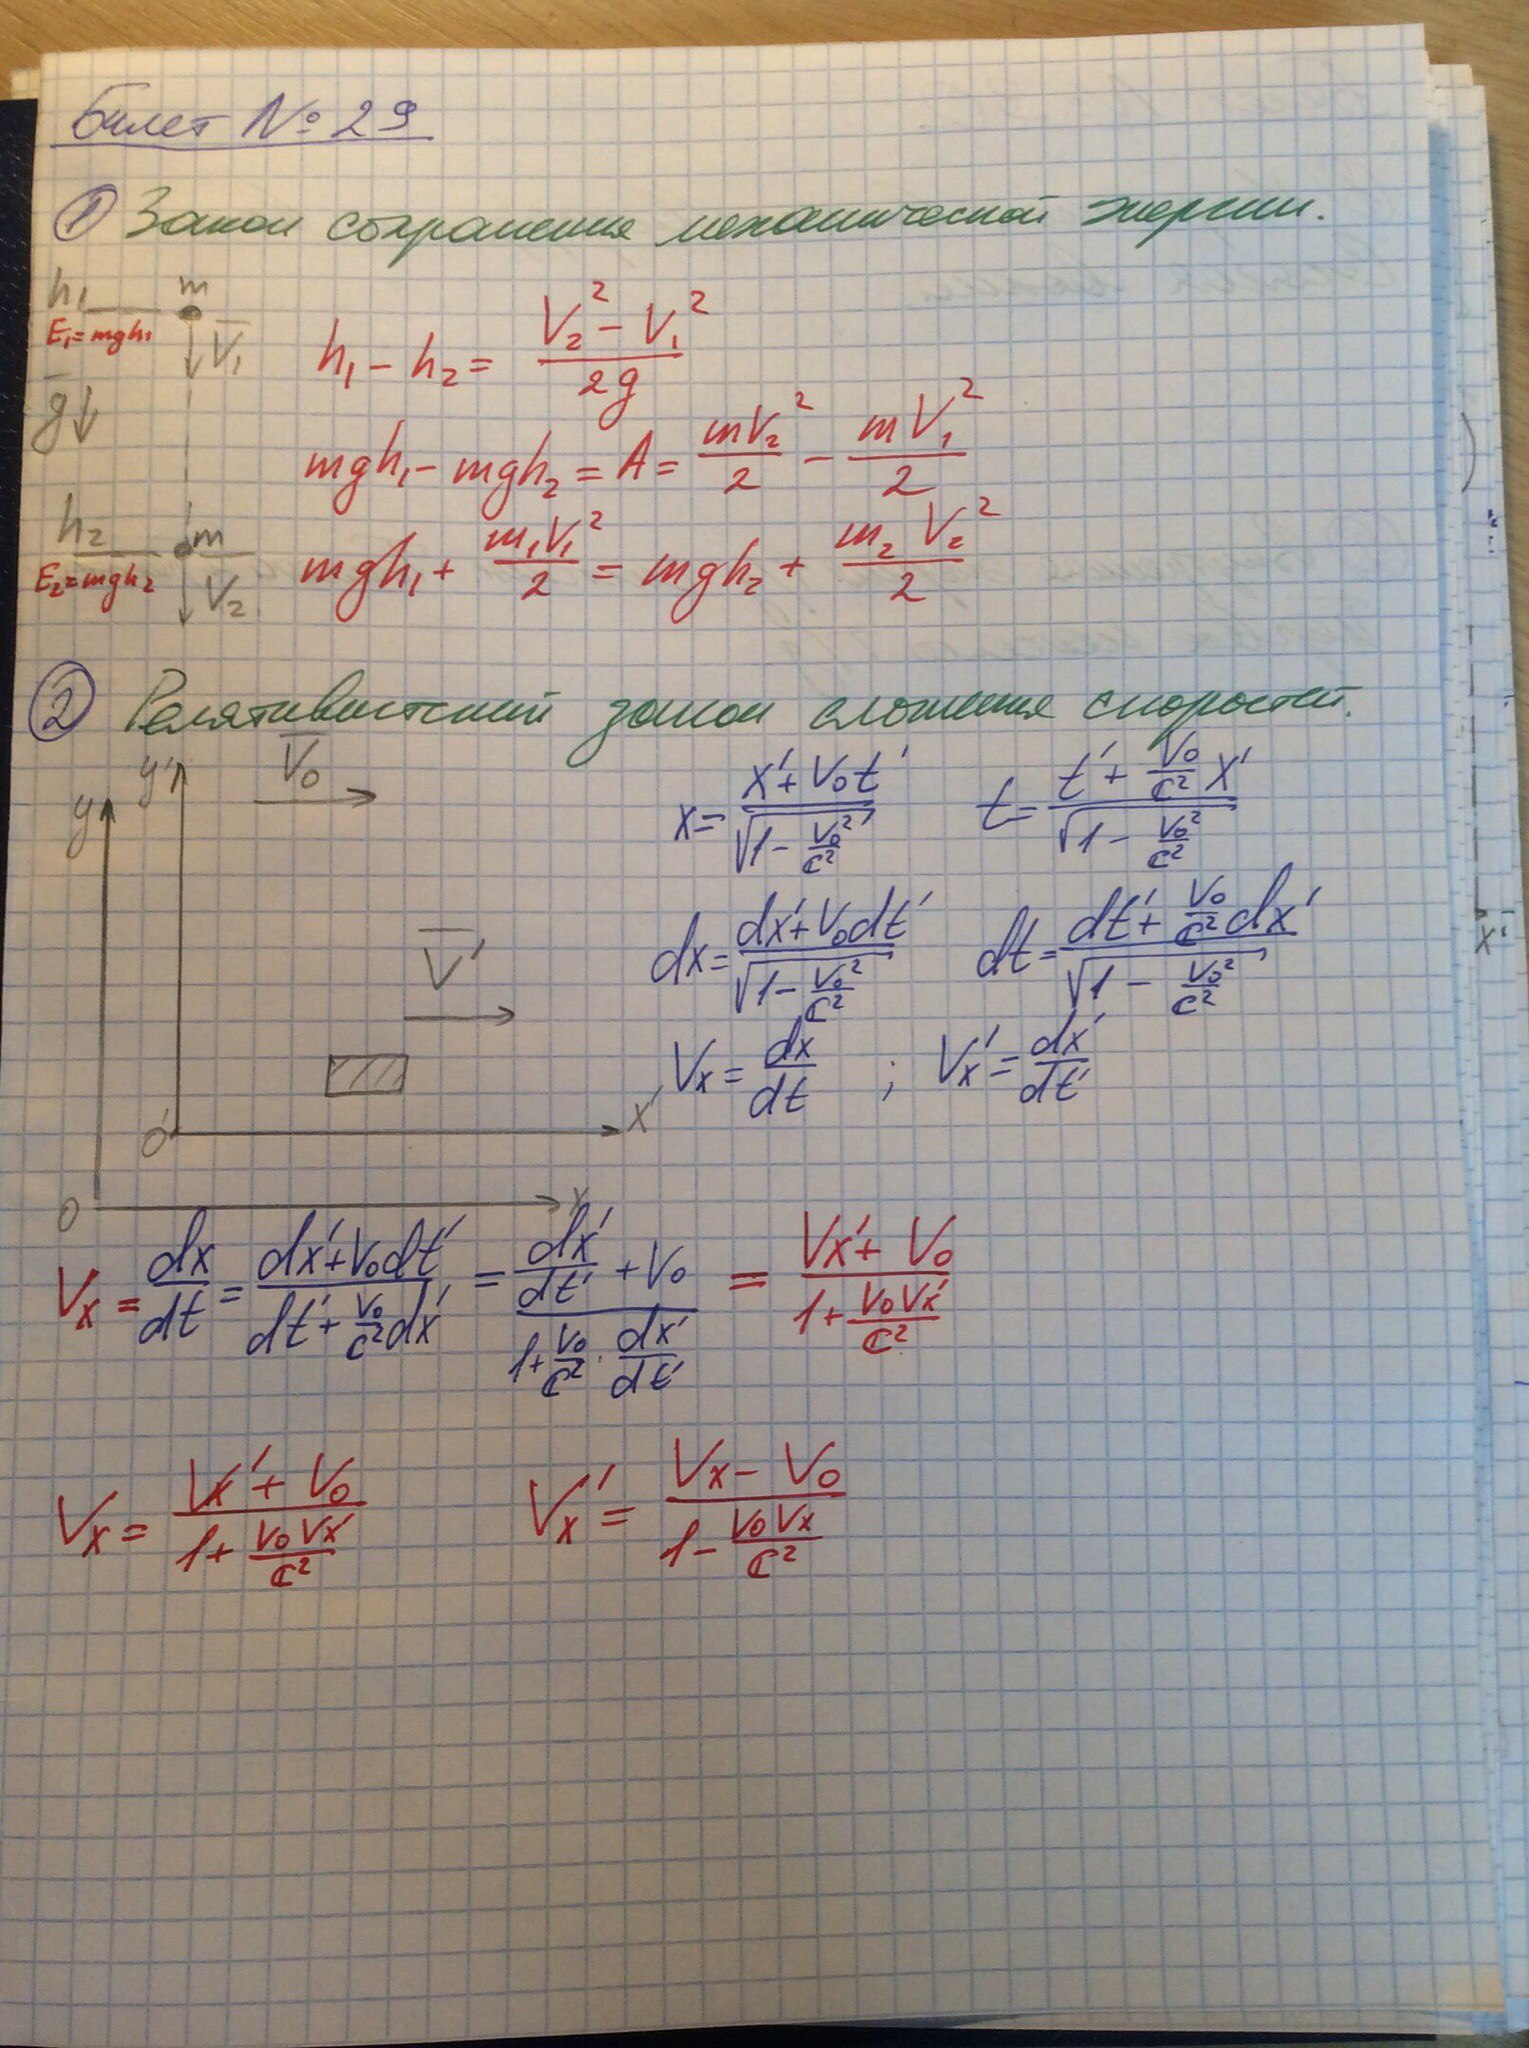 Билет № 29
① Закон сохранения механической энергии.
h₁ m
E₁=mgh₁ V̅₁
h₁ - h₂ = (V₂² - V₁²)/2g
g̅
mgh₁ - mgh₂ = A = mV₂²/2 - mV₁²/2
h₂ m
E₂=mgh₂ V̅₂
mgh₁ + m₁V₁²/2 = mgh₂ + m₂V₂²/2
② Релятивистский закон сложения скоростей.
y y' V̅₀
x = (x' + V₀t')/√(1 - V₀²/c²) t = (t' + V₀/c² x')/√(1 - V₀²/c²)
V̅'
dx = (dx' + V₀dt')/√(1 - V₀²/c²) dt = (dt' + V₀/c² dx')/√(1 - V₀²/c²)
Vx = dx/dt ; Vx' = dx'/dt'
O' x'
O x
Vx = dx/dt = (dx' + V₀dt')/(dt' + V₀/c² dx') = (dx'/dt' + V₀)/(1 + V₀/c² · dx'/dt') = (Vx' + V₀)/(1 + V₀Vx'/c²)
Vx = (Vx' + V₀)/(1 + V₀Vx'/c²) Vx' = (Vx - V₀)/(1 - V₀Vx/c²)
x'